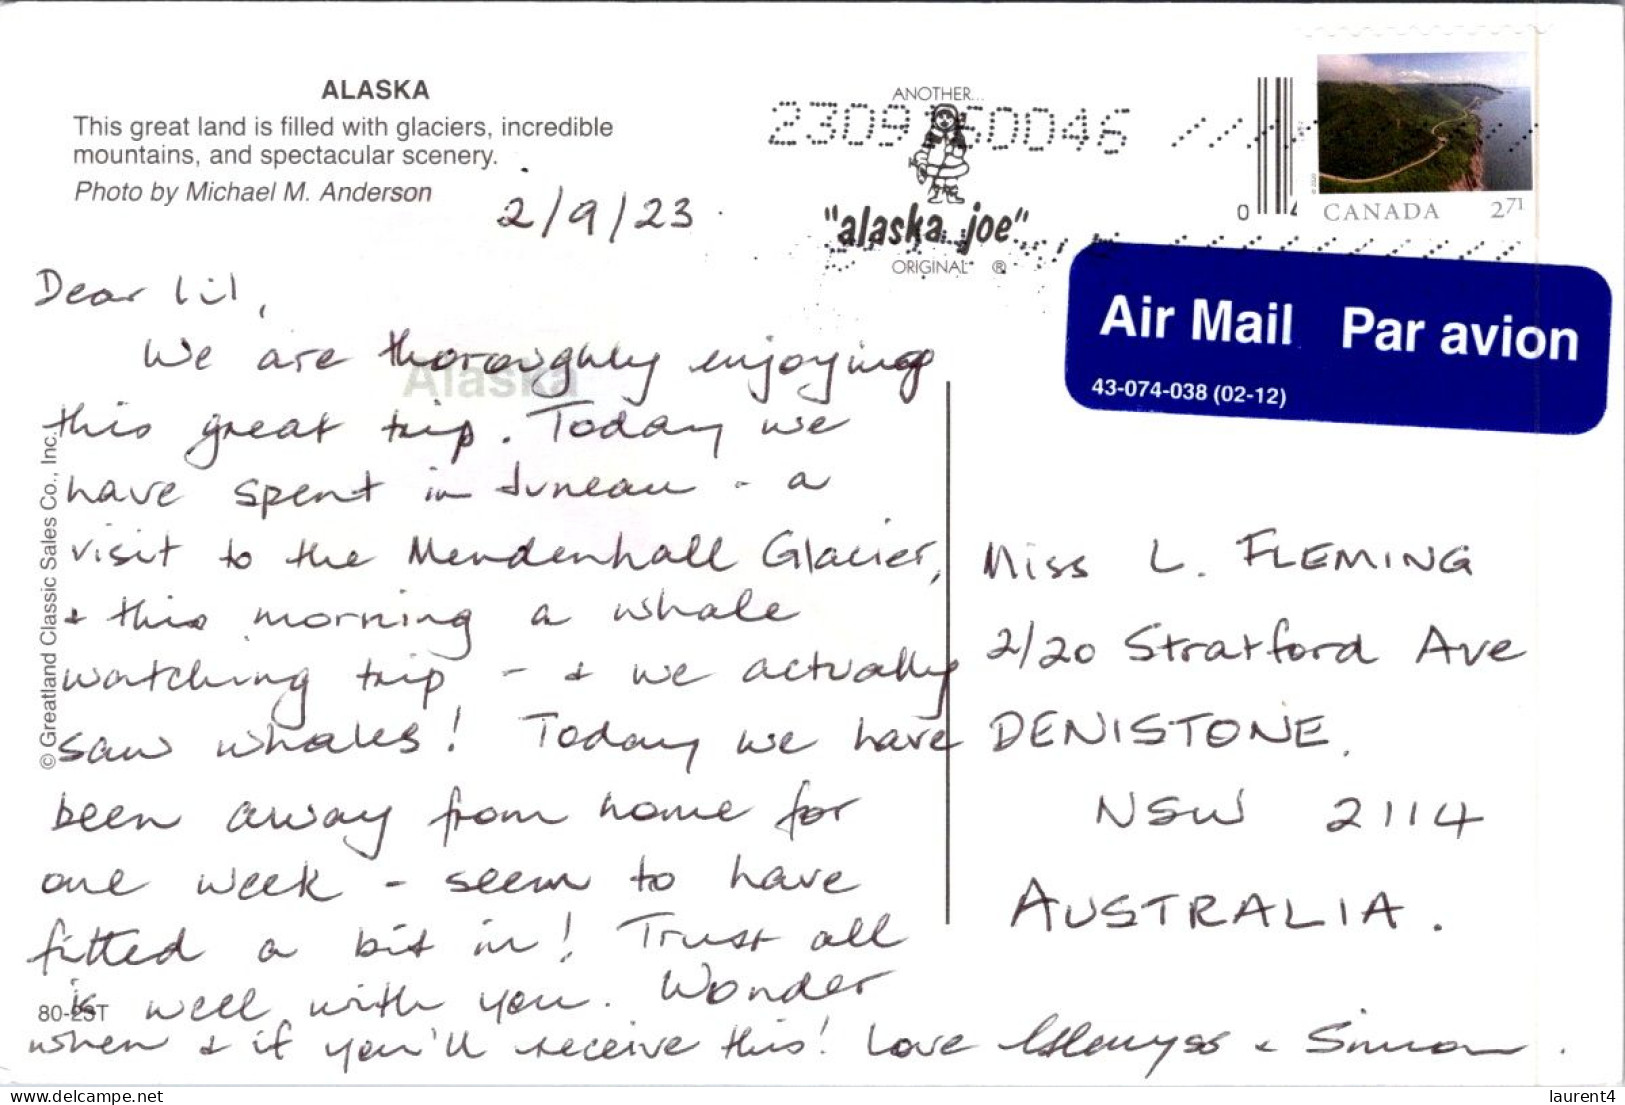 ALASKA
This great land is filled with glaciers, incredible
mountains, and spectacular scenery.
Photo by Michael M. Anderson
2/9/23
ANOTHER...
"alaska joe"
ORIGINAL ®
CANADA 2⁷¹
Air Mail Par avion
43-074-038 (02-12)
Dear Lil,
We are thoroughly enjoying
this great trip. Today we
have spent in Juneau - a
visit to the Mendenhall Glacier,
+ this morning a whale
watching trip - + we actually
saw whales! Today we have
been away from home for
one week - seem to have
fitted a bit in! Trust all
is well with you. Wonder
when + if you'll receive this! Love + Simon.
Miss L. FLEMING
2/20 Stratford Ave
DENISTONE.
NSW 2114
AUSTRALIA.
© Greatland Classic Sales Co., Inc.
Alaska
delcampe.net
laurent4